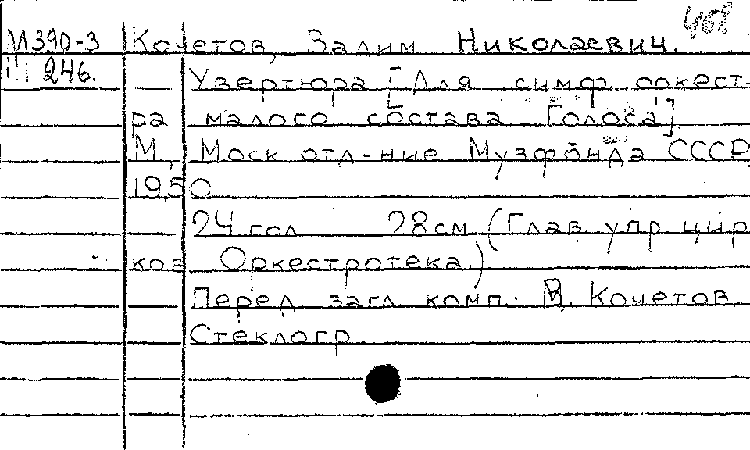 468
М390-3 Кочетов, Залим Николаевич.
III 246. Увертюра [Для симф оркест-
ра малого состава Голоса]
М, Моск отд-ние Музфонда СССР
1950
24 гол 28см (Глав упр цир
ков Оркестротека)
Перед загл комп. В. Кочетов
Стеклогр.